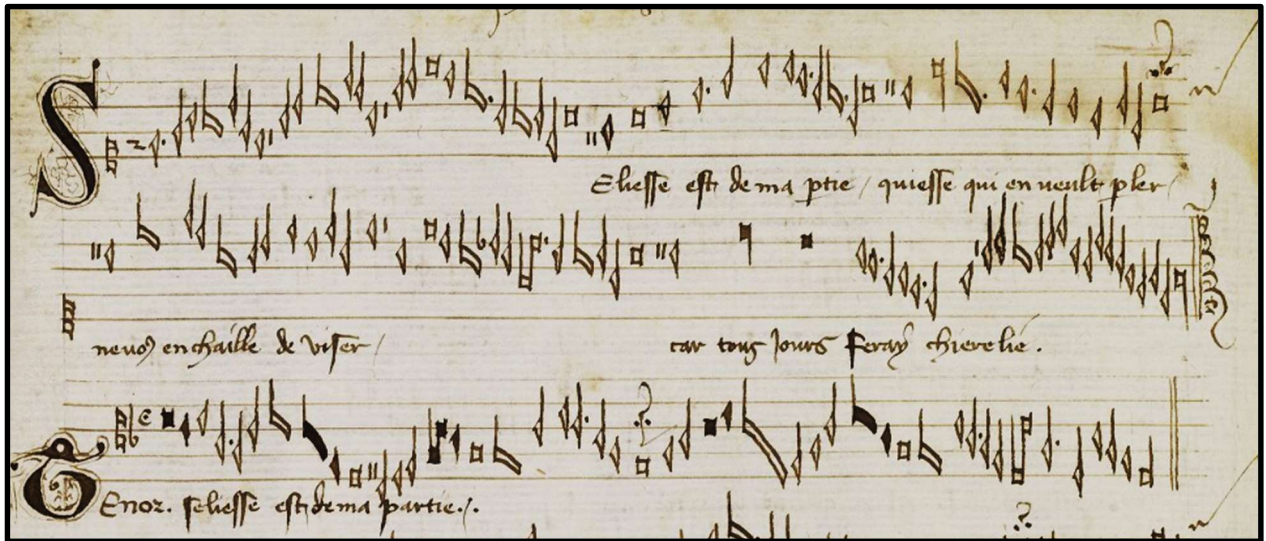 SEliesse est de ma ptie / quiesse qui en veult pler
nevo9 enchaille de viser /
car tous Jours feray chierelie .
TEnor. seliesse est de ma partie.